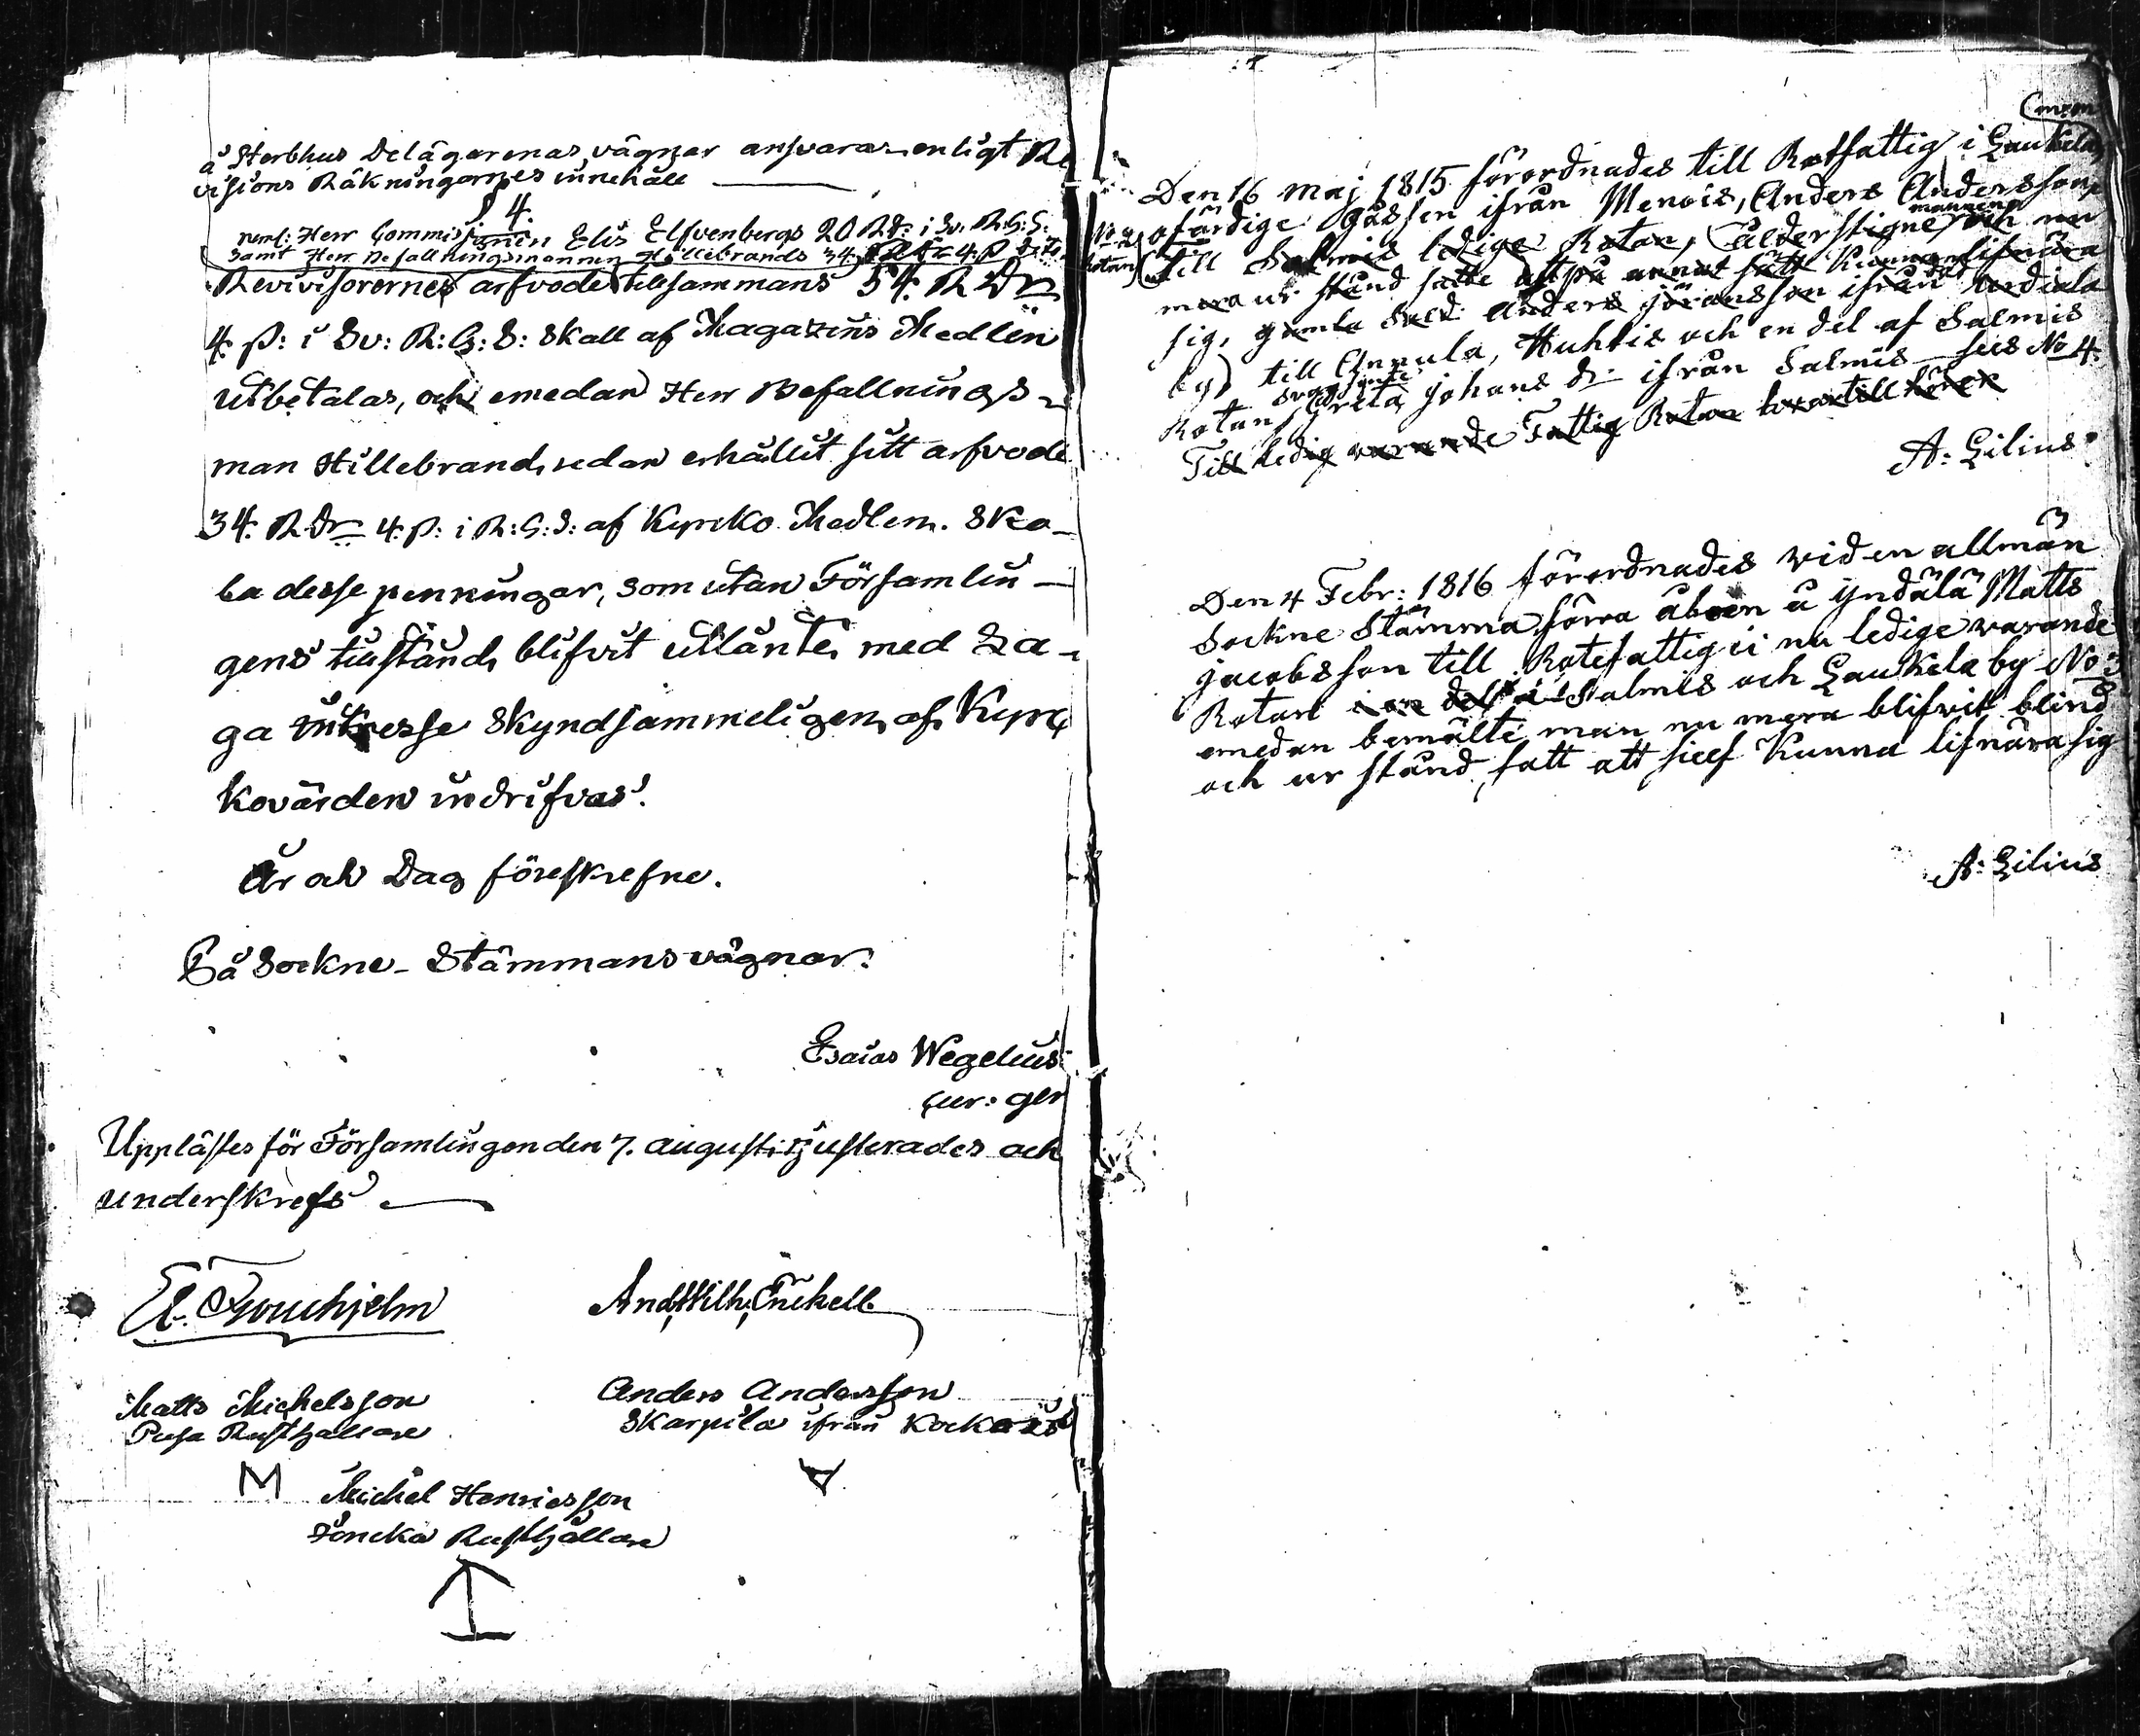 å Sterbhus Delägarenas vägnar ansvaras enligt Re
visions Räkningarnes innehåll
§ 4.
neml: Herr Commissarien Elis Elfvenbergs 20 RD: i Sv: R:G:S:
samt Herr Befallningsmannen Hillebrands 34
Revisorernes arfvode tillsammans 54. R Dr
4 β: i Sv: R:G:S: skall af Magazins Medlen
utbetalas, och emedan Herr Befallnings-
man Hillebrand redan erhållit sitt arfvode
34. R Dr 4. β: i R:G:S: af Kyrko Medlen. Ska-
la desse penningar, som utan Församlin-
gens tillstånd, blifvit utlånte, med La-
ga intresse skyndsammeligen af Kyr-
kovärden indrifvas.
År och Dag föreskrefne.
På Sockne-Stämmans vägnar:
Esaias Wegelius
Upplästes för Församlingen den 7. augusti, justerades och
underskrefs
And: Wilh: Enehell
Matts Michelsson
Pusa Rusthållare
Anders Andersson
Skarpila ifrån
M
A
Michel Henricsson
Rusthållare
Den 16 Maj 1815 förordnades till Rotfattig i Laukila
ofärdige gåssen ifrån Menois, Anders Andersson
till Salmis ledige Rotan, ålderstigne och nu
mannen
mera ur stånd satte att på annat sätt kunna lifnära
sig, gamla Anders Jöransson ifrån
by, till Annula, Huhtis och en del af Salmis
Rotan, Greta Johans dr ifrån Salmis No 4.
Till ledig varande Fattig Rotan hvartill hörer
A: Lilius
Den 4 Febr: 1816 förordnades vid en allmän
Sockne Stämma, förra åboen å Yndälä Matts
Jacobsson till Rotefattig i nu ledige varande
Rotan i en del i Salmis och Laukila by No 3
emedan bemälte man nu mera blifvit blind
och ur stånd satt att sielf kunna lifnära sig
A: Lilius